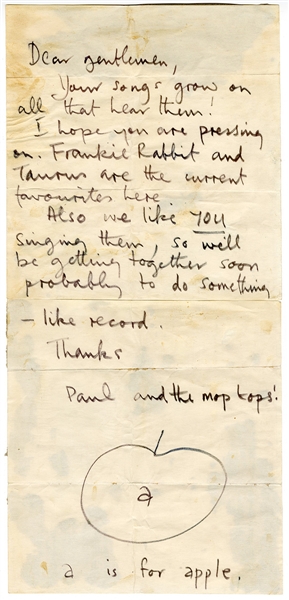 Dear gentlemen,
Your songs grow on
all that hear them!
I hope you are pressing
on. Frankie Rabbit and
Taurus are the current
favourites here.
Also we like YOU
singing them, so we'll
be getting together soon
probably to do something
– like record.
Thanks
Paul and the mop tops!
a
a is for apple.